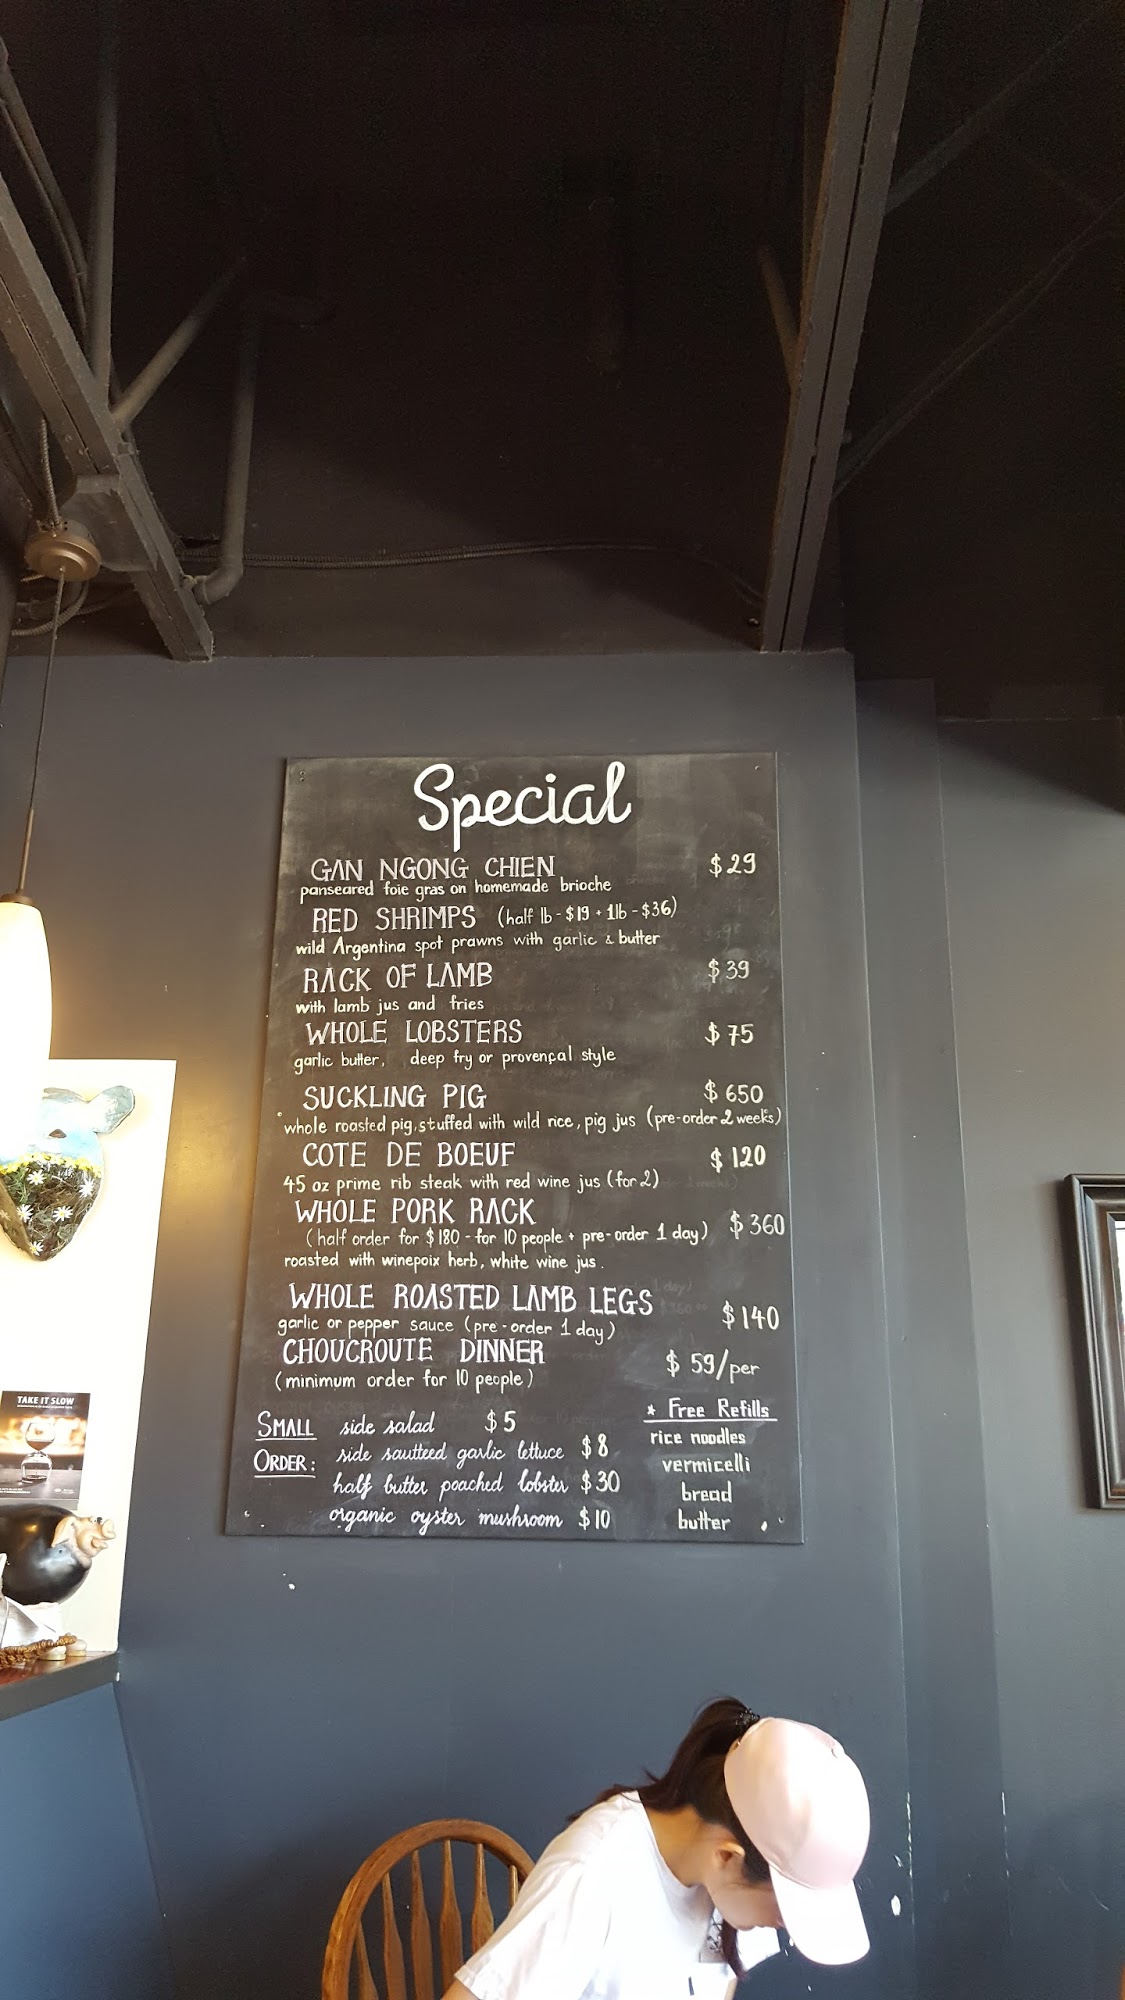 Special
GAN NGONG CHIEN $29
panseared foie gras on homemade brioche
RED SHRIMPS (half lb - $19 + 1lb - $36)
wild Argentina spot prawns with garlic & butter
RACK OF LAMB $39
with lamb jus and fries
WHOLE LOBSTERS $75
garlic butter, deep fry or provençal style
SUCKLING PIG $650
whole roasted pig, stuffed with wild rice, pig jus (pre-order 2 weeks)
COTE DE BOEUF $120
45 oz prime rib steak with red wine jus (for 2)
WHOLE PORK RACK $360
(half order for $180 - for 10 people + pre-order 1 day)
roasted with winepoix herb, white wine jus.
WHOLE ROASTED LAMB LEGS $140
garlic or pepper sauce (pre-order 1 day)
CHOUCROUTE DINNER $59/per
(minimum order for 10 people)
SMALL ORDER: side salad $5
side sautteed garlic lettuce $8
half butter poached lobster $30
organic oyster mushroom $10
* Free Refills
rice noodles
vermicelli
bread
butter
TAKE IT SLOW